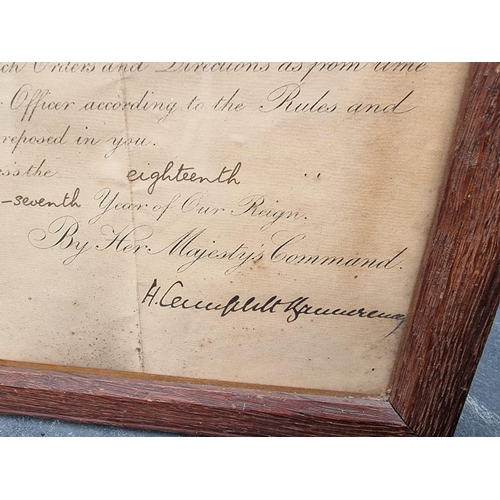 ch Orders and Directions as from time
r Officer according to the Rules and
reposed in you.
ss the eighteenth
-seventh Year of Our Reign.
By Her Majesty's Command.
H. Campbell Bannerman